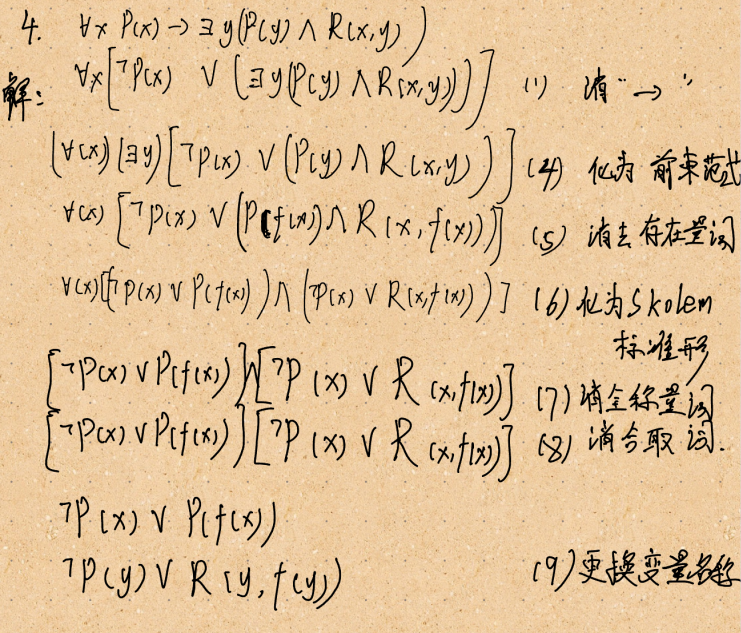 4. ∀x P(x) → ∃y(P(y) ∧ R(x,y))
解: ∀x[¬P(x) ∨ (∃y(P(y) ∧ R(x,y)))] (1) 消"→"
(∀(x))(∃y)[¬P(x) ∨ (P(y) ∧ R(x,y))] (4) 化为前束范式
∀(x)[¬P(x) ∨ (P(f(x)) ∧ R(x,f(x)))] (5) 消去存在量词
∀(x)[(¬P(x) ∨ P(f(x))) ∧ (¬P(x) ∨ R(x,f(x)))] (6) 化为Skolem
标准形
[¬P(x) ∨ P(f(x))]∧[¬P(x) ∨ R(x,f(x))] (7) 消全称量词
[¬P(x) ∨ P(f(x))][¬P(x) ∨ R(x,f(x))] (8) 消合取词.
¬P(x) ∨ P(f(x))
¬P(y) ∨ R(y,f(y)) (9) 更换变量名称